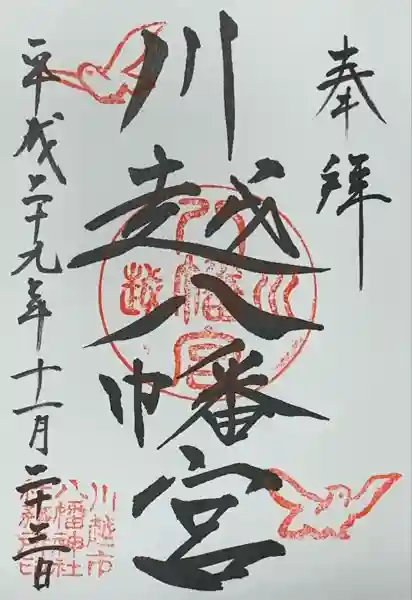 奉拝
川越八幡宮
平成二十九年十一月二十三日
川越八幡宮
川越市
八幡神社